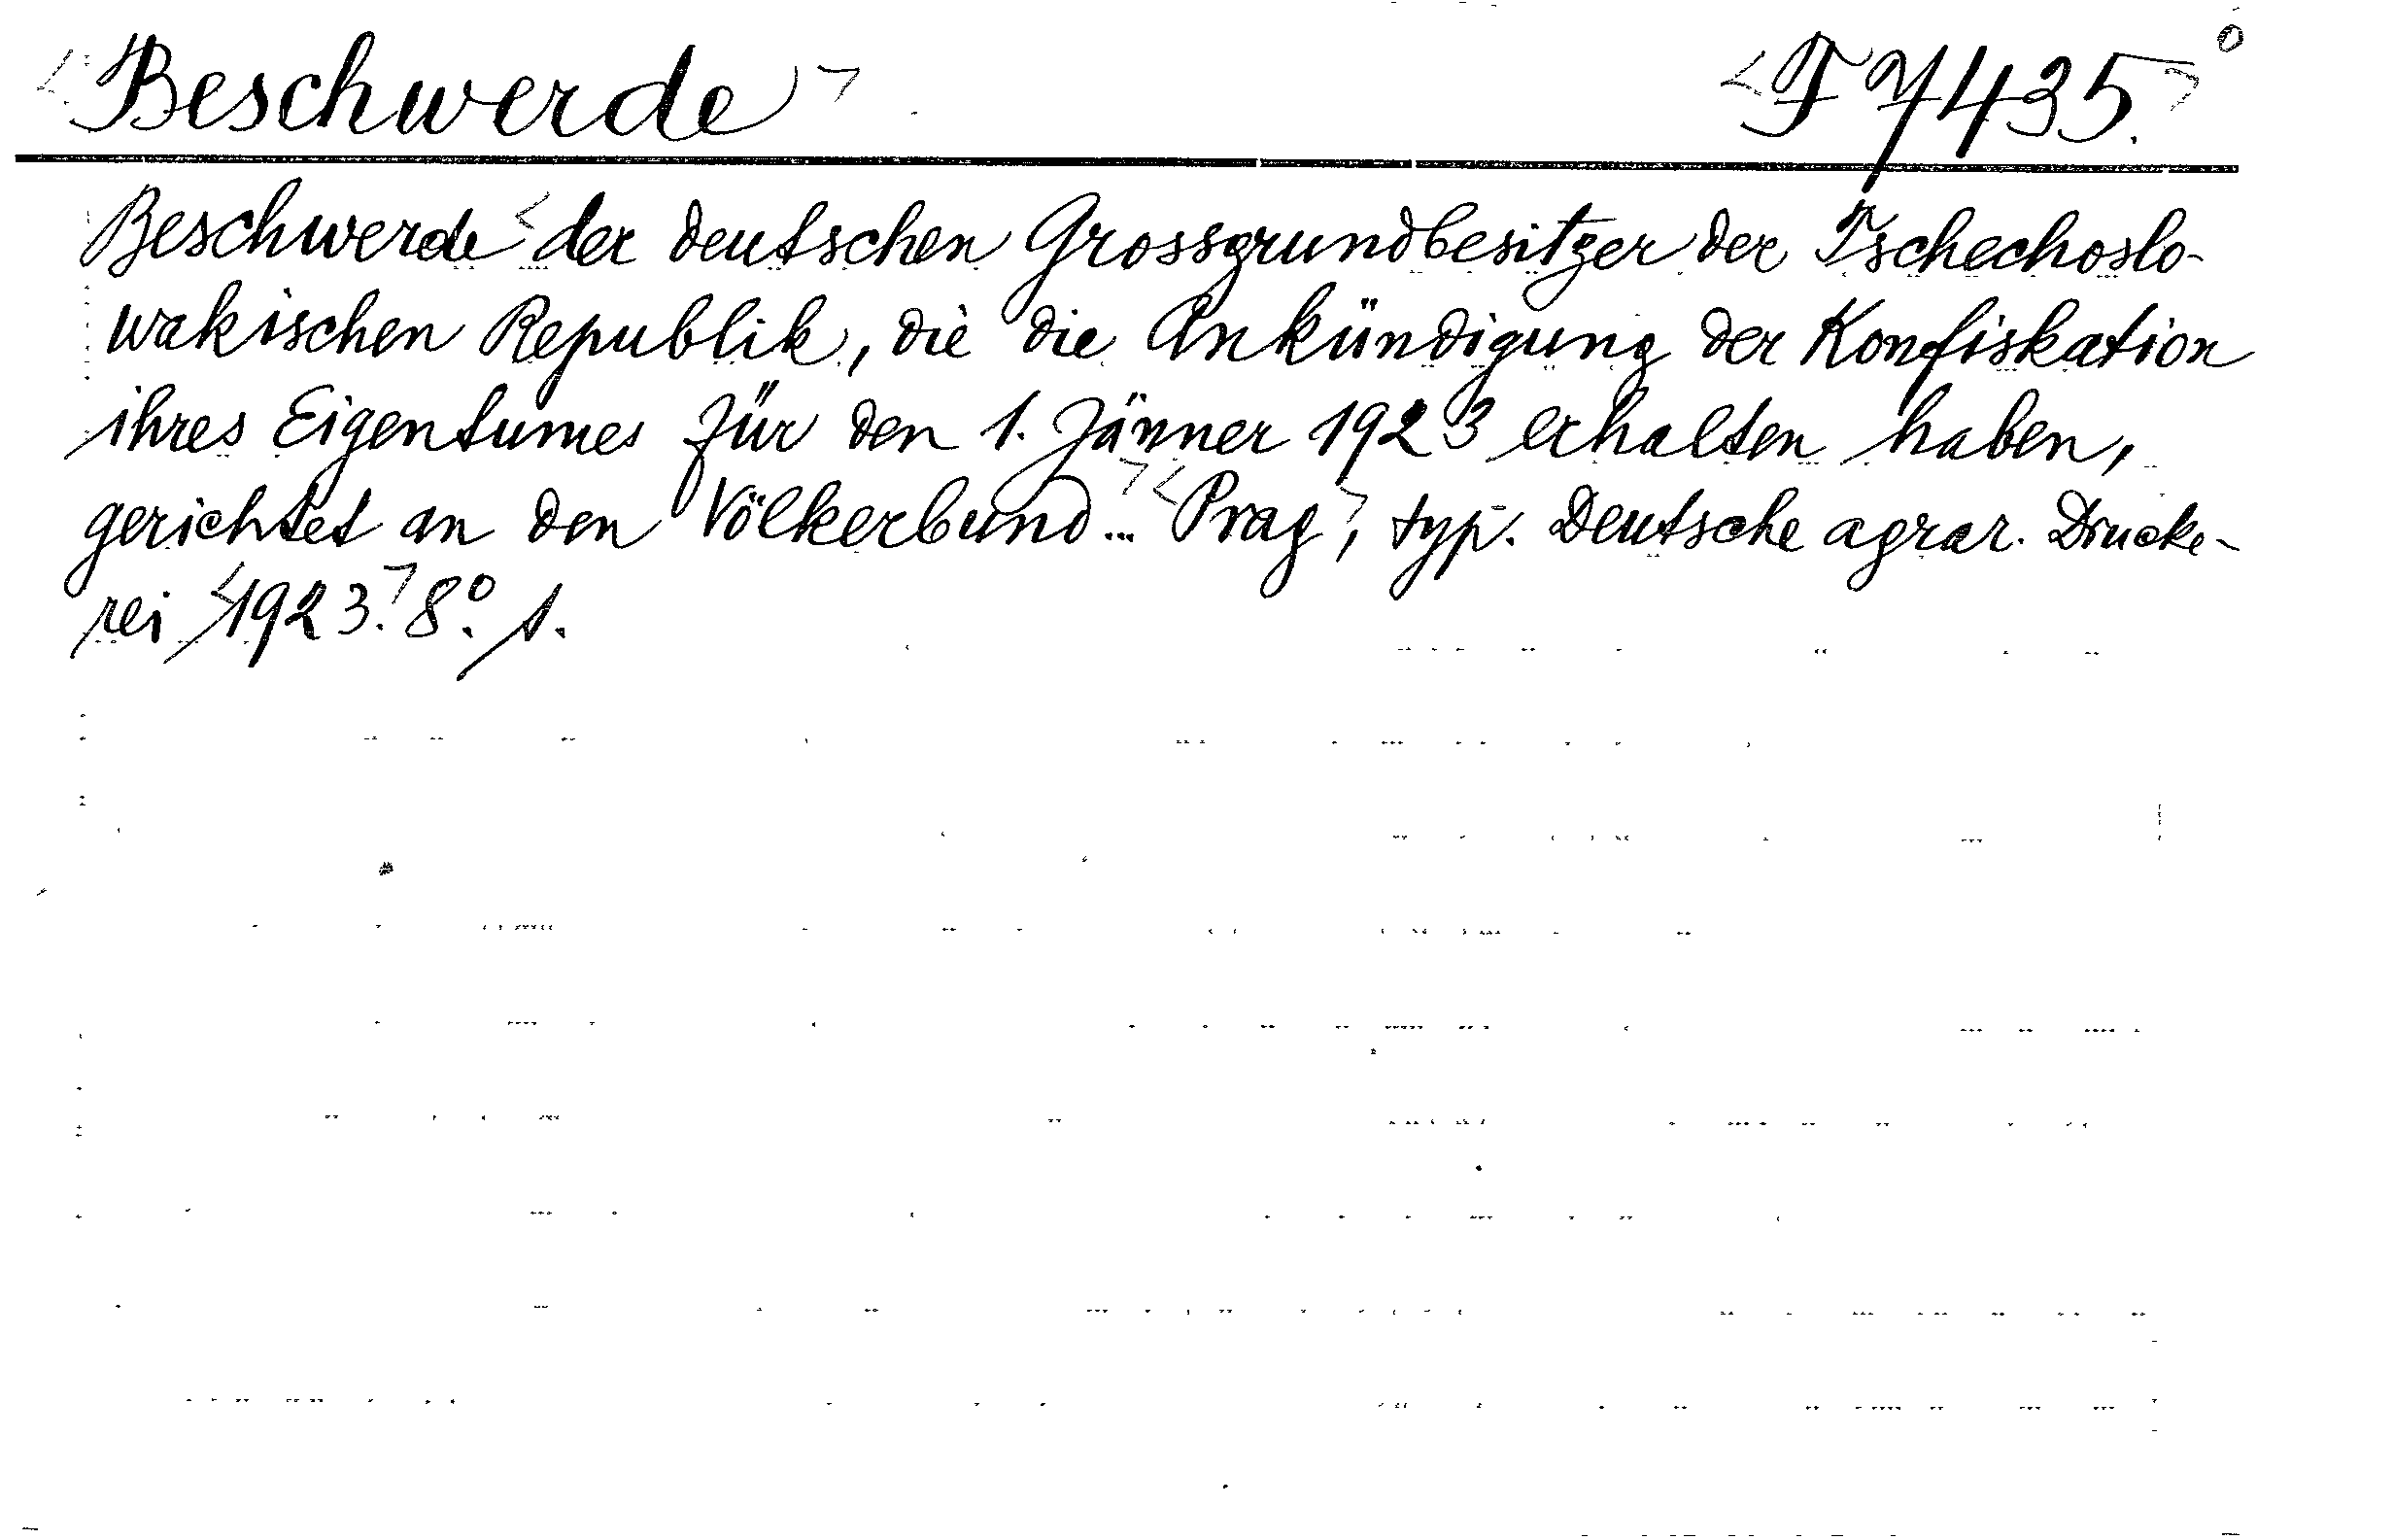 <Beschwerde> <F 7435.> o
Beschwerde <der deutschen Grossgrundbesitzer der Tschechoslo-
wakischen Republik, die die Ankündigung der Konfiskation
ihres Eigentumes für den 1. Jänner 1923 erhalten haben,
gerichtet an den Völkerbund...> <Prag>, typ. Deutsche agrar. Drucke-
rei <1923.> 8°. s.